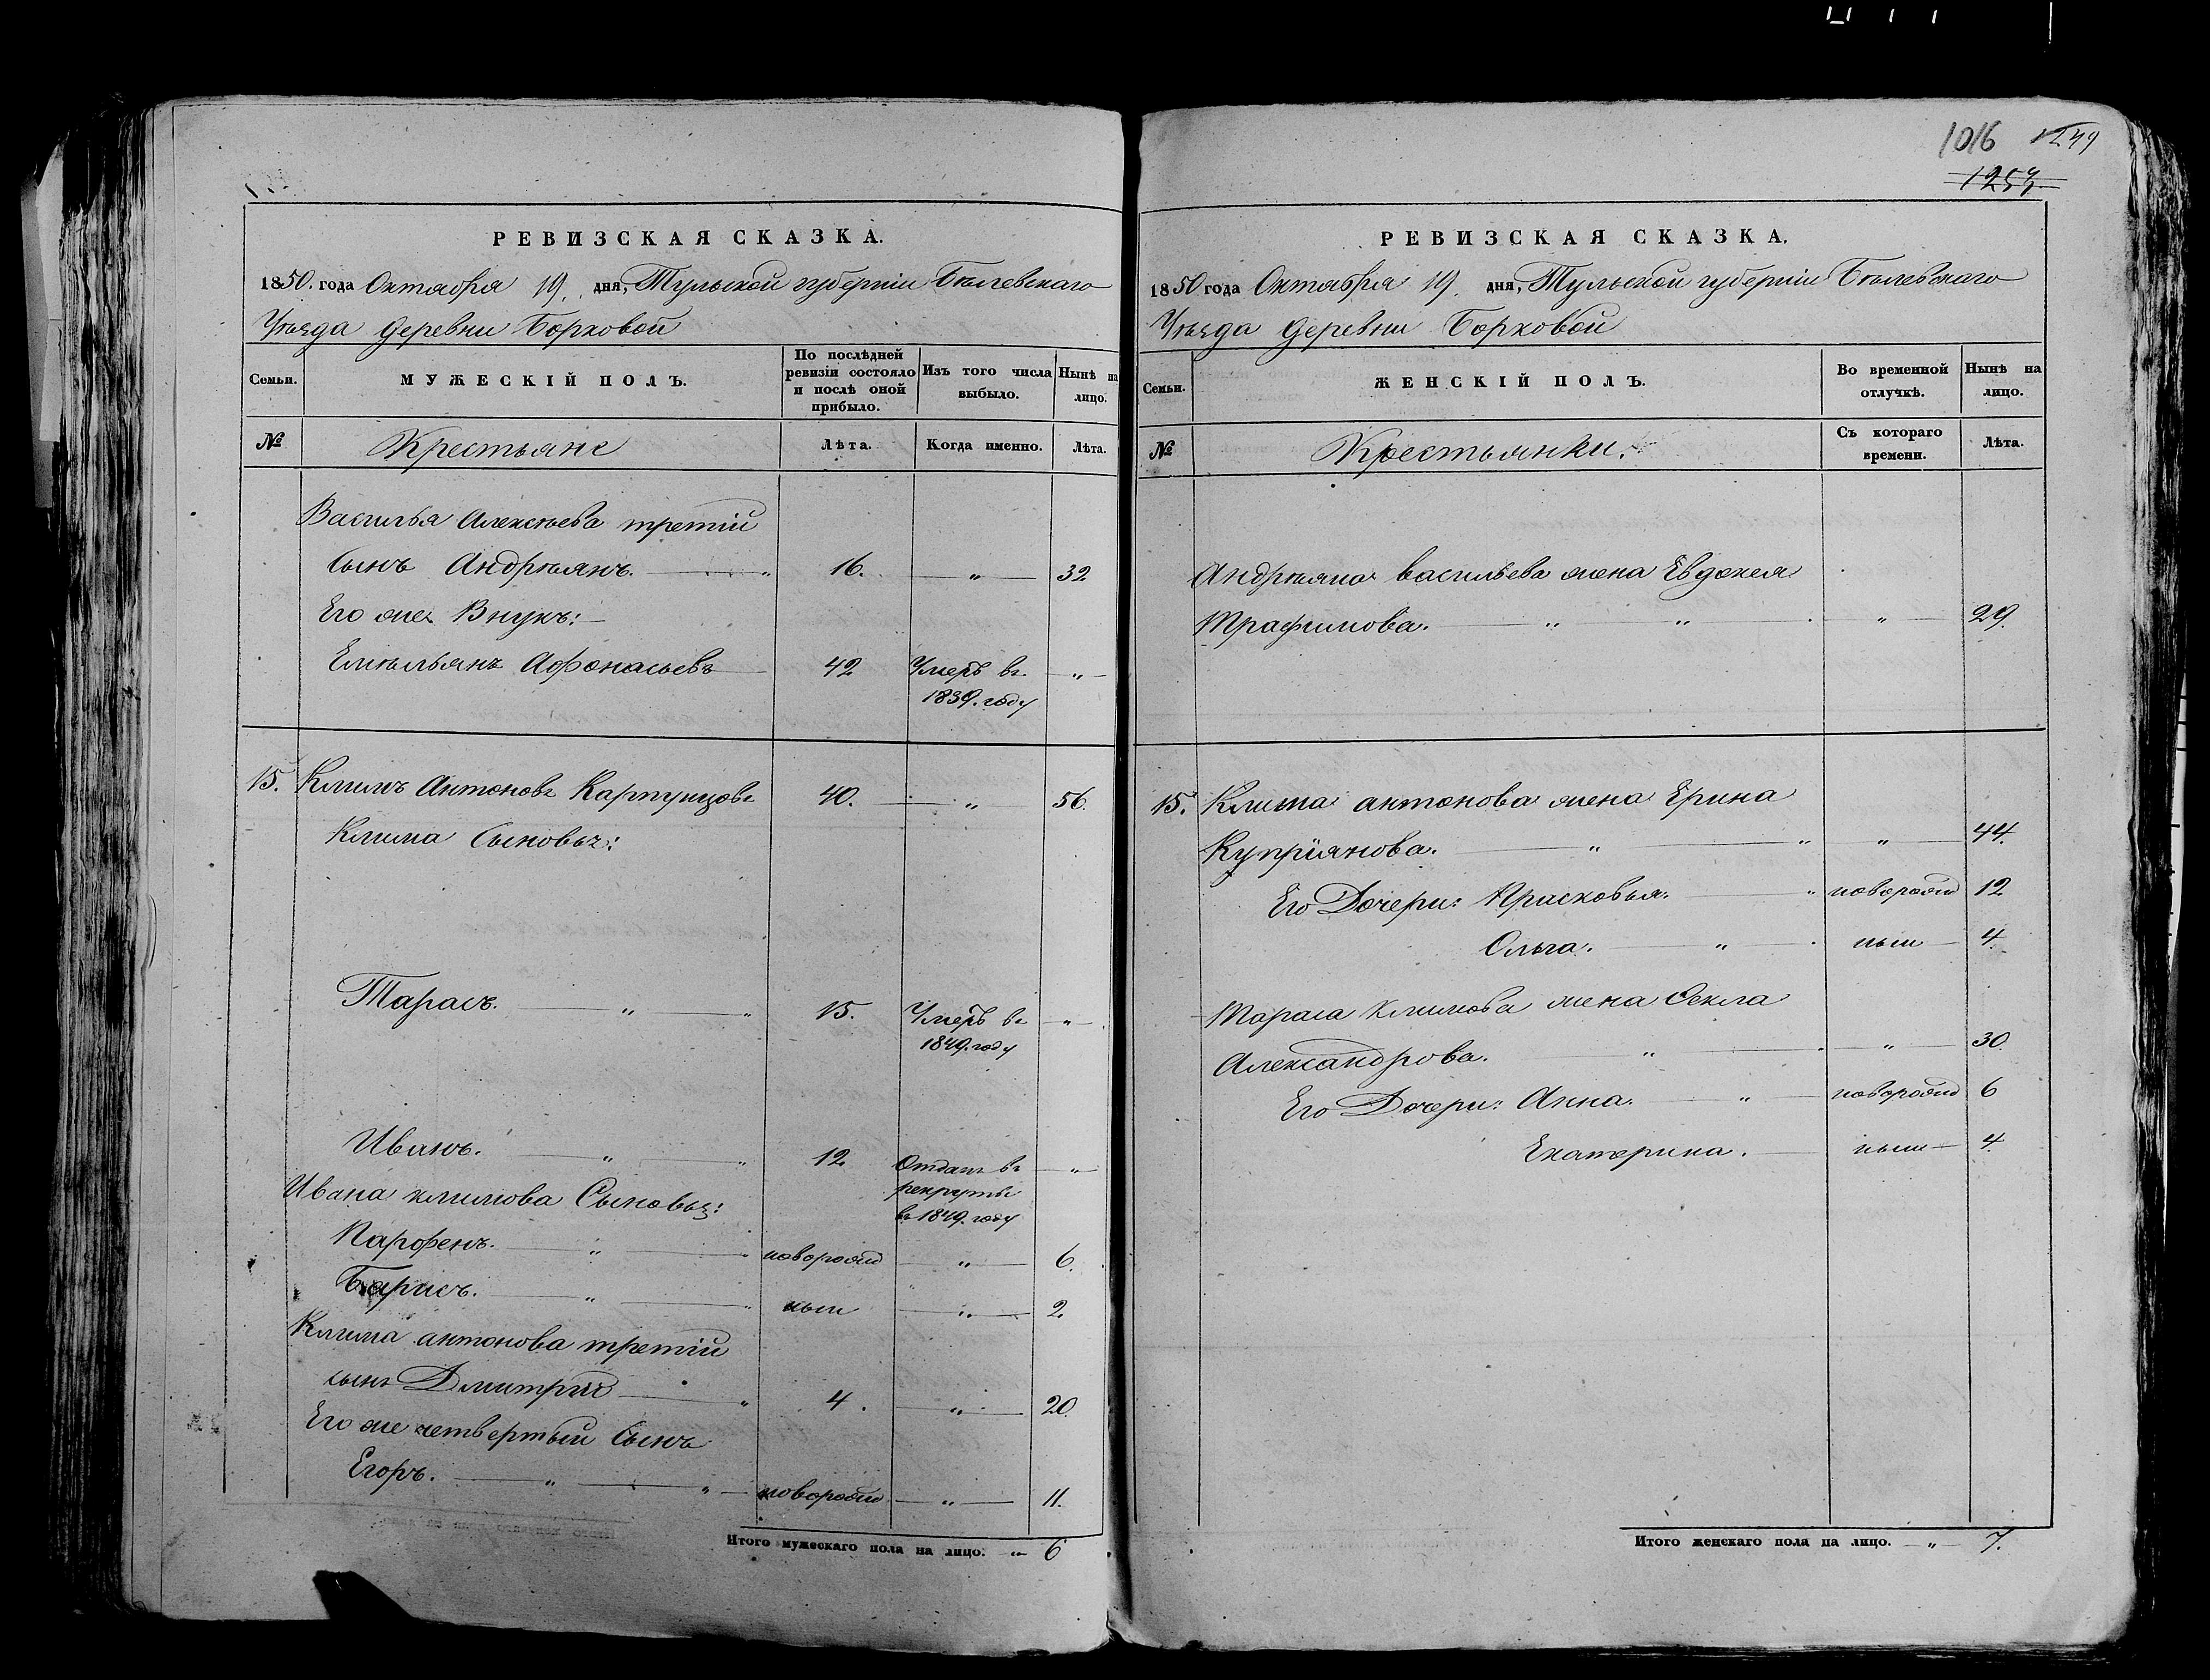 РЕВИЗСКАЯ СКАЗКА.
1850. года Октября 19. дня, Тульской губерніи Бѣлевскаго
Уѣзда деревни Борховой
Семьи.
МУЖЕСКІЙ ПОЛЪ.
По послѣдней ревизіи состояло и послѣ оной прибыло.
Изъ того числа выбыло.
Нынѣ на лицо.
№
Крестьяне
Лѣта.
Когда именно.
Лѣта.
Василья Алексѣева третій
Сынъ Андреянъ. 16. „ 32
Его же Внукъ:
Емельянъ Афонасьевъ 42 Умеръ въ „
1839. году
15. Климъ Антоновъ 40. „ 56.
Клима Сыновья:
Тарасъ. „ „ 15. Умеръ въ „
1849. году
Иванъ. „ „ 12 Отданъ въ „
рекруты
въ 1849. году
Ивана климова Сыновья:
Парфенъ. „ новорожд „ 6.
Барисъ. „ „ ный „ 2
Клима антонова третій
сынъ Дмитрій „ 4. „ 20.
Его же четвертый Сынъ
Егоръ. „ „ новорожд „ 11.
Итого мужескаго пола на лицо. „ 6
1016 1249
1254
РЕВИЗСКАЯ СКАЗКА.
1850 года Октября 19. дня, Тульской губерніи Бѣлевскаго
Уѣзда деревни Борховой
Семьи.
ЖЕНСКІЙ ПОЛЪ.
Во временной отлучкѣ.
Нынѣ на лицо.
№
Крестьянки.
Съ котораго времени.
Лѣта.
Андреяна васильева жена Евдокея
Трафимова. „ „ „ 29.
15. Клима антонова жена Ерина
Купріянова. „ „ „ 44.
Его Дочери: Прасковья. „ новорожд 12
Ольга. „ ныи 4.
Тараса Климова жена Фекла
Александрова. „ „ 30.
Его Дочери: Анна. „ новорожд 6
Екатерина. ныи 4.
Итого женскаго пола на лицо. „ 7.